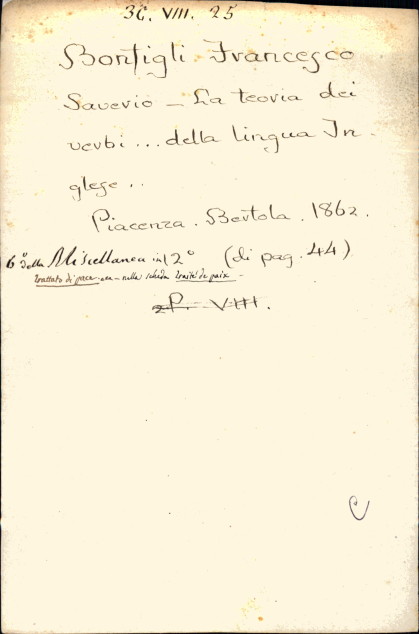 36. VIII. 25
Bonfigli Francesco
Saverio - La teoria dei
verbi ... della lingua In-
glese ..
Piacenza. Bertola. 1862.
6° della Miscellanea in 12° (di pag. 44)
trattato di pace nella scheda traité de paix -
2P. VIII.